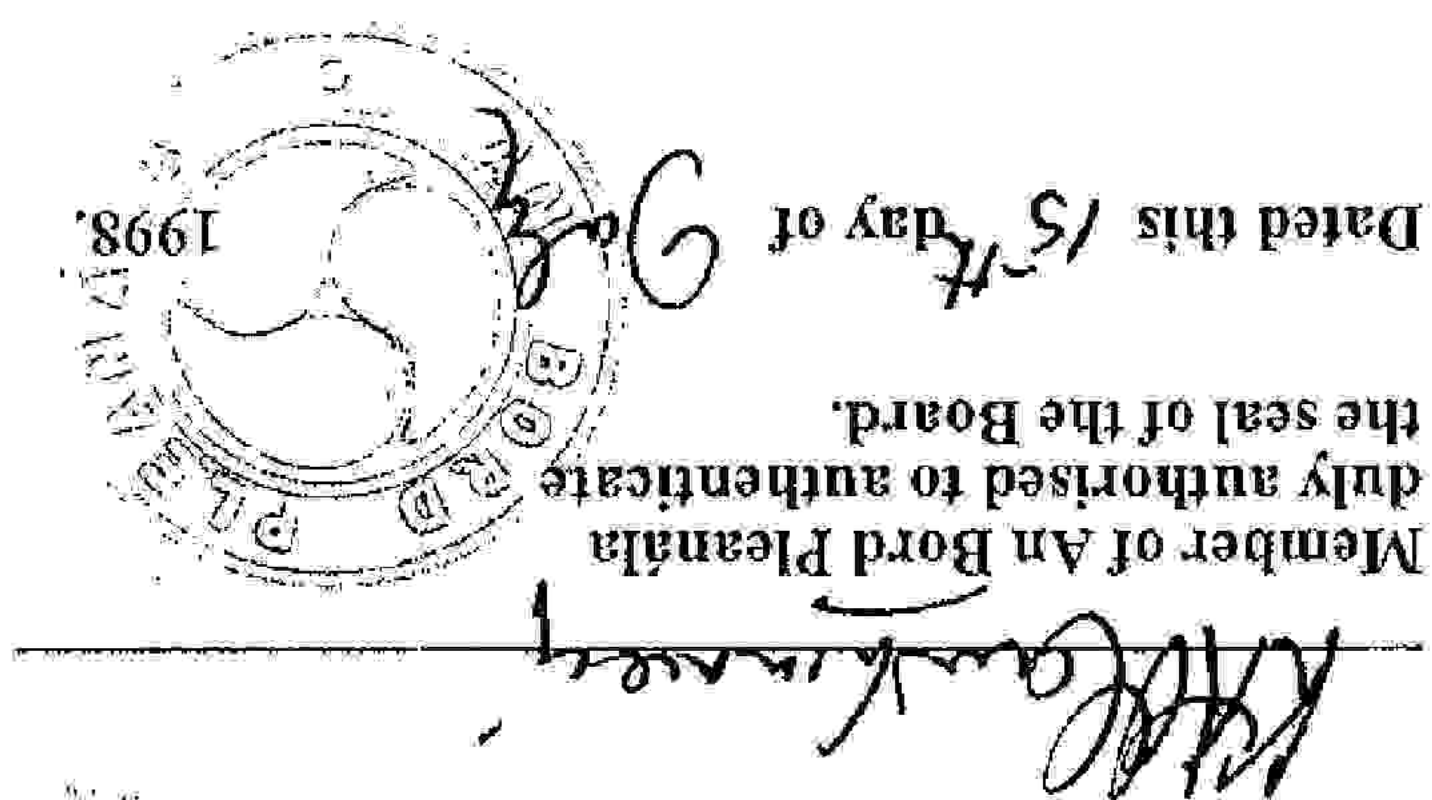 Member of An Bord Pleanála
duly authorised to authenticate
the seal of the Board.
Dated this 15th day of July 1998.
BORD